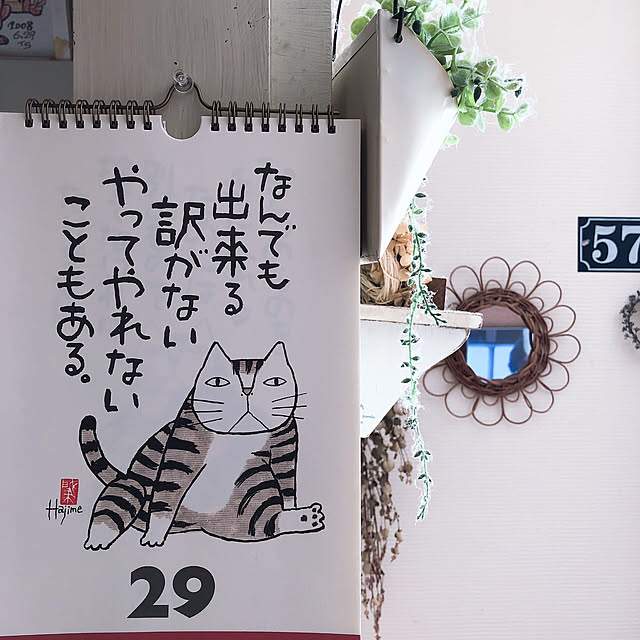 なんでも
出来る
訳がない
やってやれない
こともある。
Hajime
29
57
1008
6.29